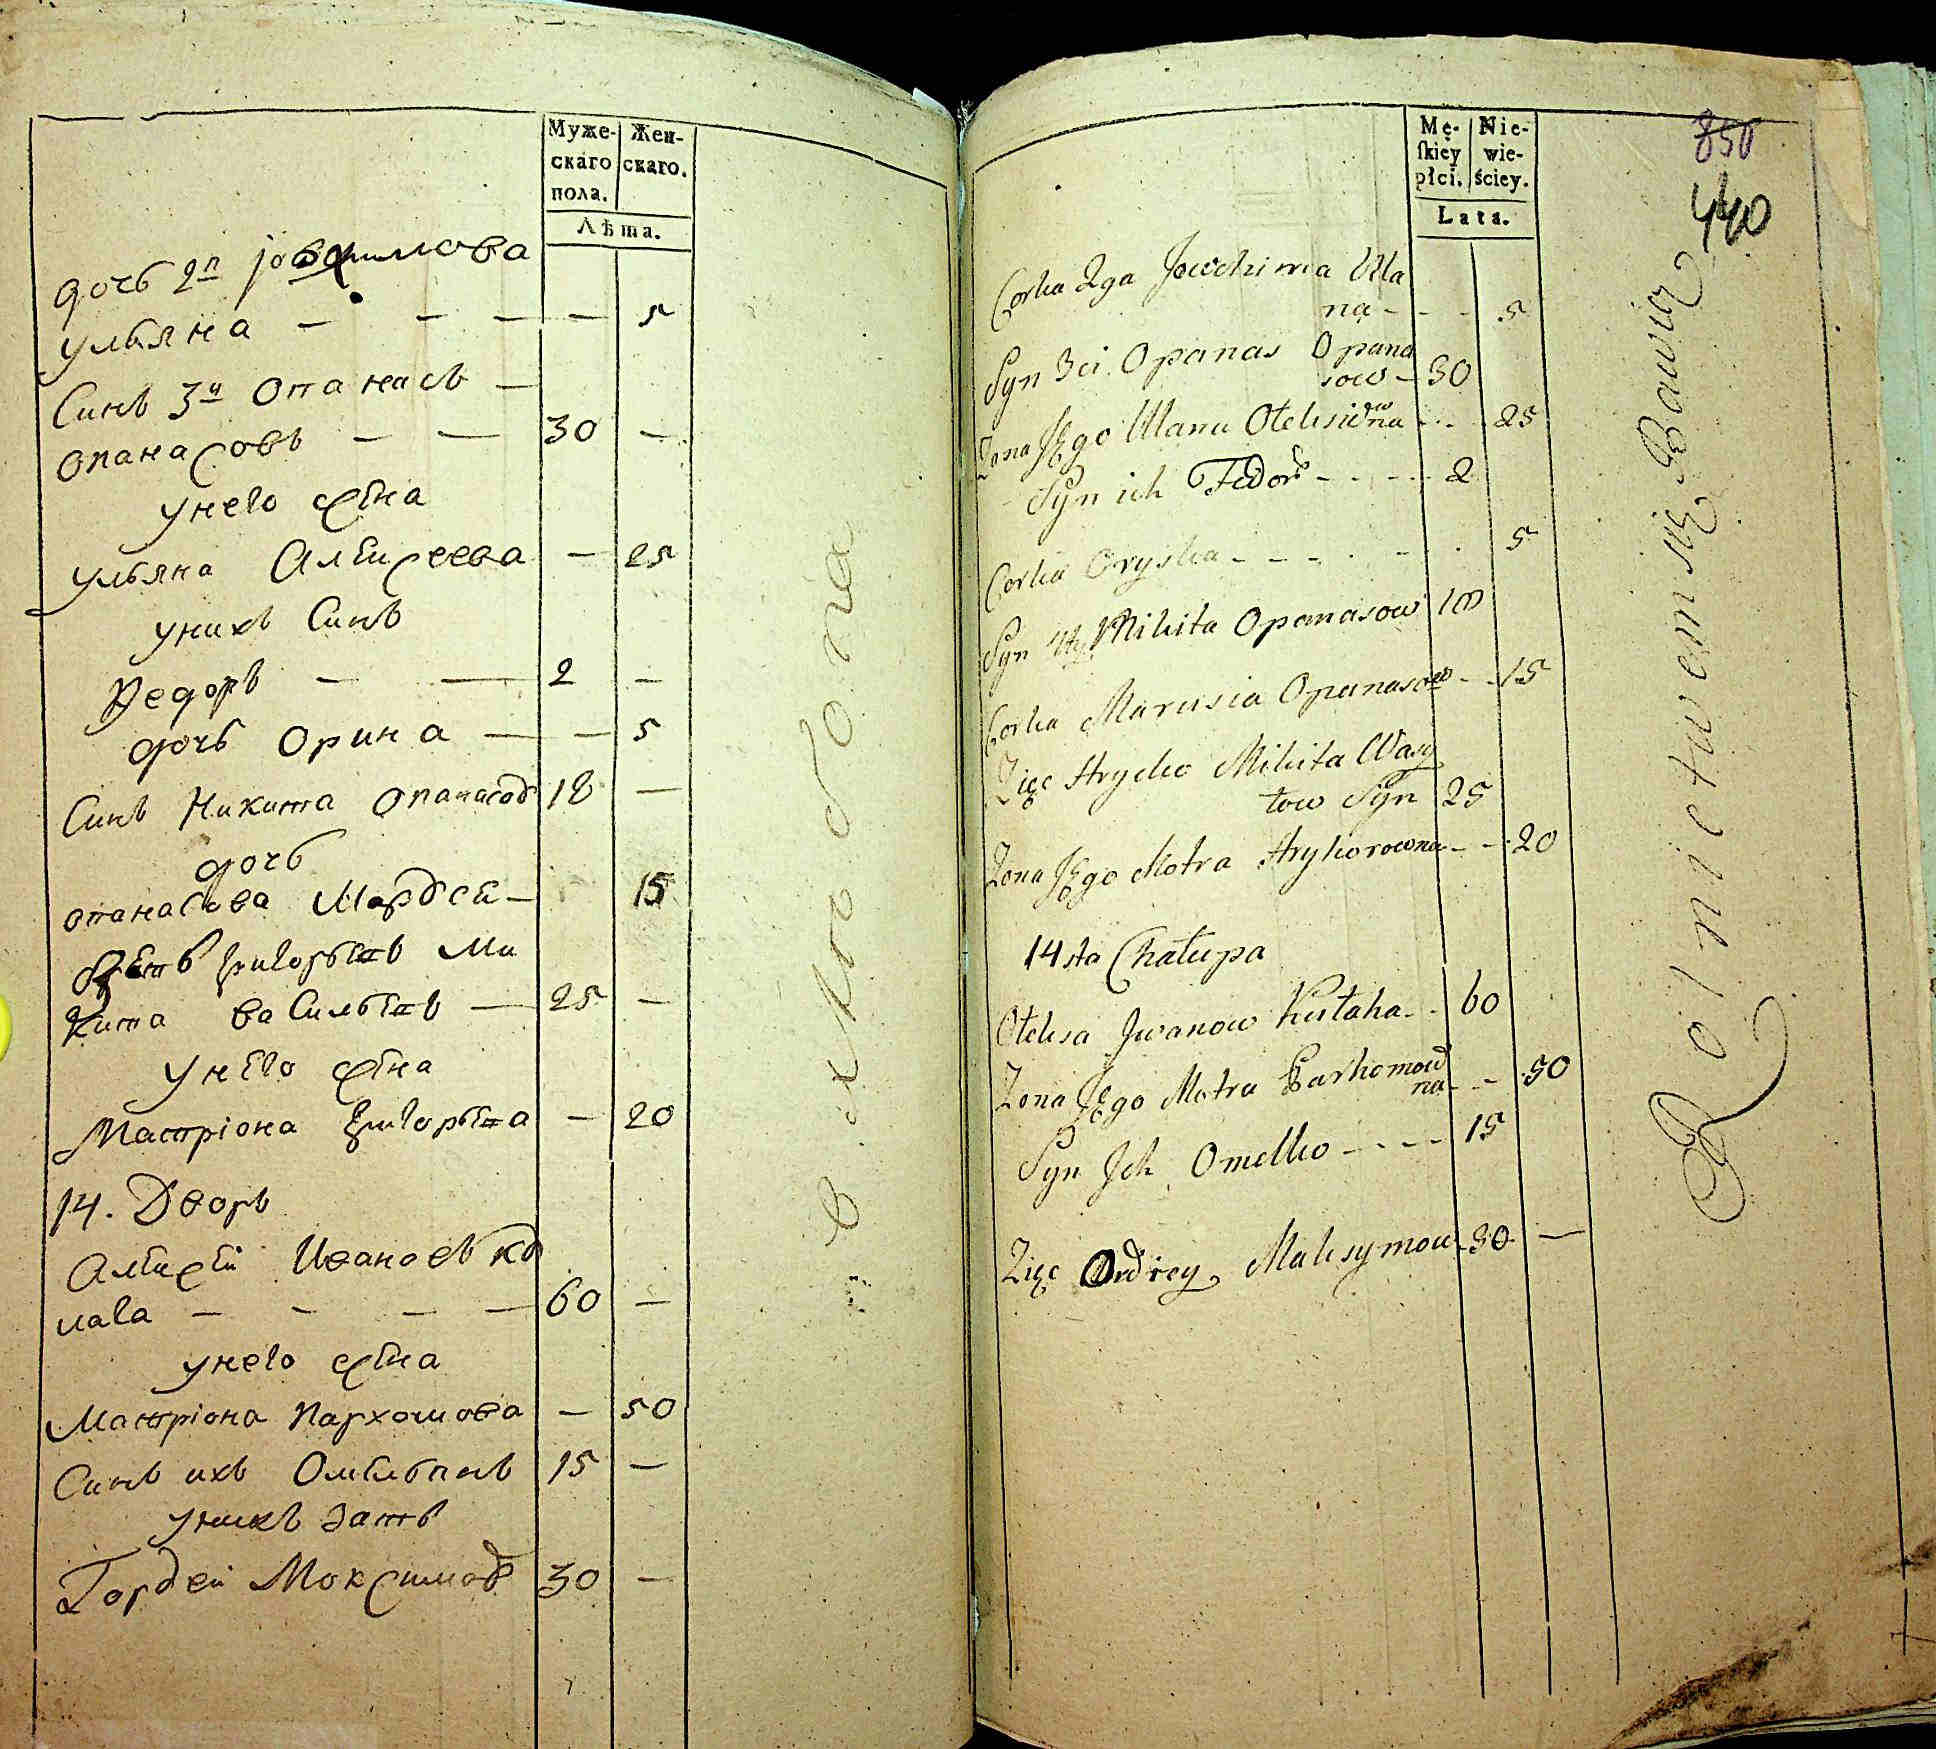 Муже-
скаго
пола.
Жен-
скаго.
Лѣта.
дочь 2п Јовхимова
ульяна — — — — 5
Синъ 3и Опанасъ —
опанасовъ — — 30 —
унего жена
ульяна Алексеева — 25
унихъ Синъ
Федоръ — — 2 —
дочь Орина — — 5
Синъ Никита опанасов 18 —
дочь
опанасова 15
Ми
кита васильевъ — 25 —
унего жена
Матріона Григорьева — 20
14. Дворъ
Алексей Ивановъ Ку
лага — — — — 60 —
унего жена
Матріона Пархомова — 50
Синъ ихъ Омельянъ 15 —
унихъ зать
Гордей Максимов 30 —
Mę-
skiey
płci.
Nie-
wie-
ściey.
Lata.
850
440
Corka 2ga Jowchima Ula
na - - - 5
Syn 3ci Opanas Opana
sow - 30
Zona Jego Ulana Oleksiowna - - - 25
Syn ich Fedor - - - - 2
Corka Oryszka - - - - - - 5
Syn 4ty Mikita Opanasow 18
Corka Marusia Opanasow - - 15
Zięc Hrycko Mikita Wasy
low Syn 25
Zona Jego Motra Hryhorowna - - 20
14sta Chałupa
Oleksa Jwanow Kułaha - - 60
Zona Jego Motra Parhomow
na - - 50
Syn Jch Omelko - - - - 15
Zięc Ondrey Maksymow 30 —
Rolnictwem się Bawią